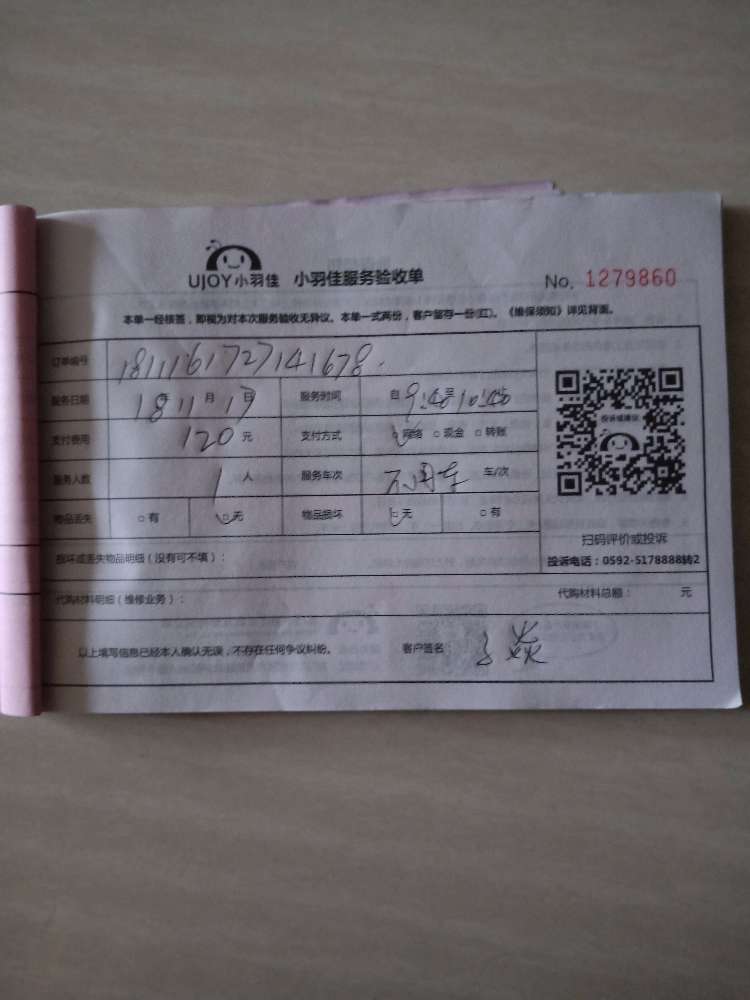 UJOY小羽佳 小羽佳服务验收单 No. 1279860
本单一经核签，即视为对本次服务验收无异议。本单一式两份，客户留存一份(红)。《维保须知》详见背面。
订单编号 1811161727141678.
服务日期 18年11月17日 服务时间 自9:40至10:40
支付费用 120元 支付方式 □网络 □现金 □转账
服务人数 1人 服务车次 不用车 车/次
物品丢失 □有 □无 物品损坏 □无 □有
投诉或建议
扫码评价或投诉
投诉电话：0592-5178888转2
损坏或丢失物品明细（没有可不填）：
代购材料明细（维修业务）： 代购材料总额： 元
以上填写信息已经本人确认无误，不存在任何争议纠纷。 客户签名：